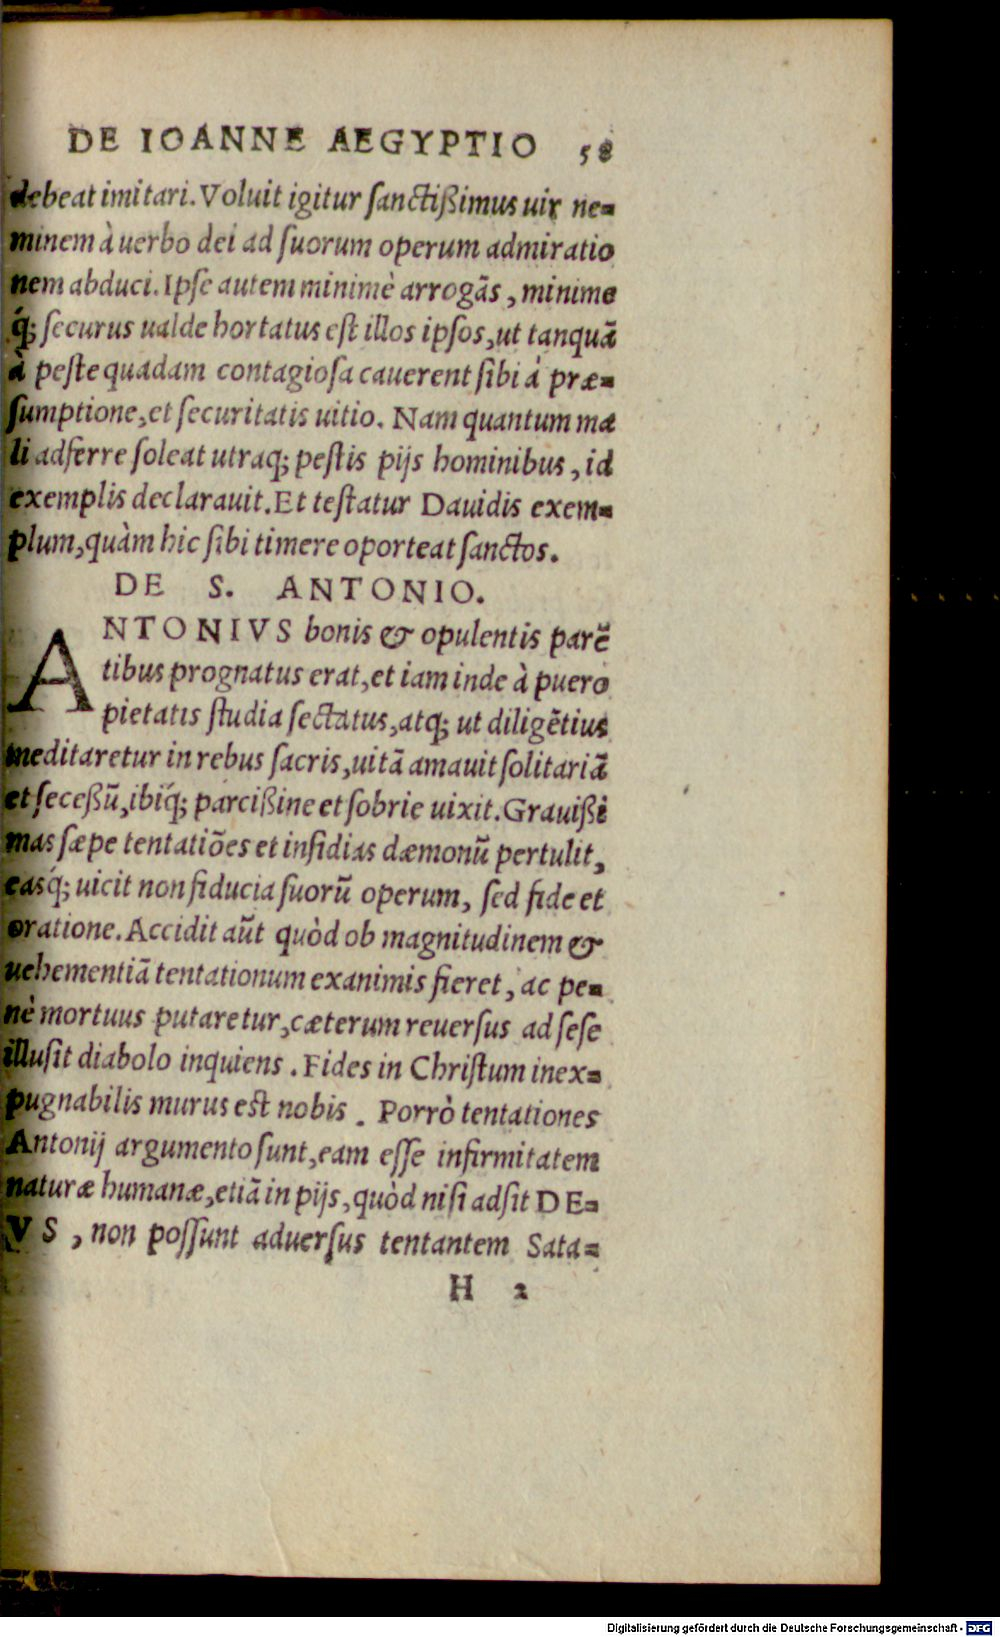 DE IOANNE AEGYPTIO 58
debeat imitari. Voluit igitur ſanctißimus uir ne=
minem à uerbo dei ad ſuorum operum admiratio
nem abduci. Ipſe autem minimè arrogãs, minime
q́; ſecurus ualde hortatus eſt illos ipſos, ut tanquã
à peſte quadam contagioſa cauerent ſibi à præ=
ſumptione, et ſecuritatis uitio. Nam quantum ma
li adferre ſoleat utraq; peſtis pijs hominibus, id
exemplis declarauit. Et teſtatur Dauidis exem=
plum, quàm hic ſibi timere oporteat ſanctos.
DE S. ANTONIO.
ANTONIVS bonis & opulentis parẽ
tibus prognatus erat, et iam inde à puero
pietatis ſtudia ſectatus, atq; ut diligẽtius
meditaretur in rebus ſacris, uitã amauit ſolitariã
et ſeceßũ, ibiq́; parcißine et ſobrie uixit. Grauißi
mas ſæpe tentatiões et inſidias dæmonũ pertulit,
easq́; uicit non fiducia ſuorũ operum, ſed fide et
oratione. Accidit aũt quòd ob magnitudinem &
uehementiã tentationum exanimis fieret, ac pe=
nè mortuus putaretur, cæterum reuerſus ad ſeſe
illuſit diabolo inquiens. Fides in Chriſtum inex=
pugnabilis murus eſt nobis. Porrò tentationes
Antonij argumento ſunt, eam eſſe infirmitatem
naturæ humanæ, etiã in pijs, quòd niſi adſit DE=
VS, non poſſunt aduerſus tentantem Sata=
H 2
Digitalisierung gefördert durch die Deutsche Forschungsgemeinschaft - DFG